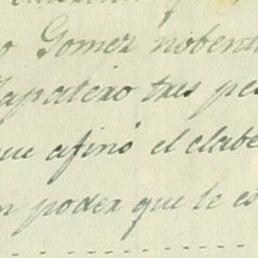 o Gomez nobent
Zapatero tres pe
ue afinó el clabe
n poder que le es